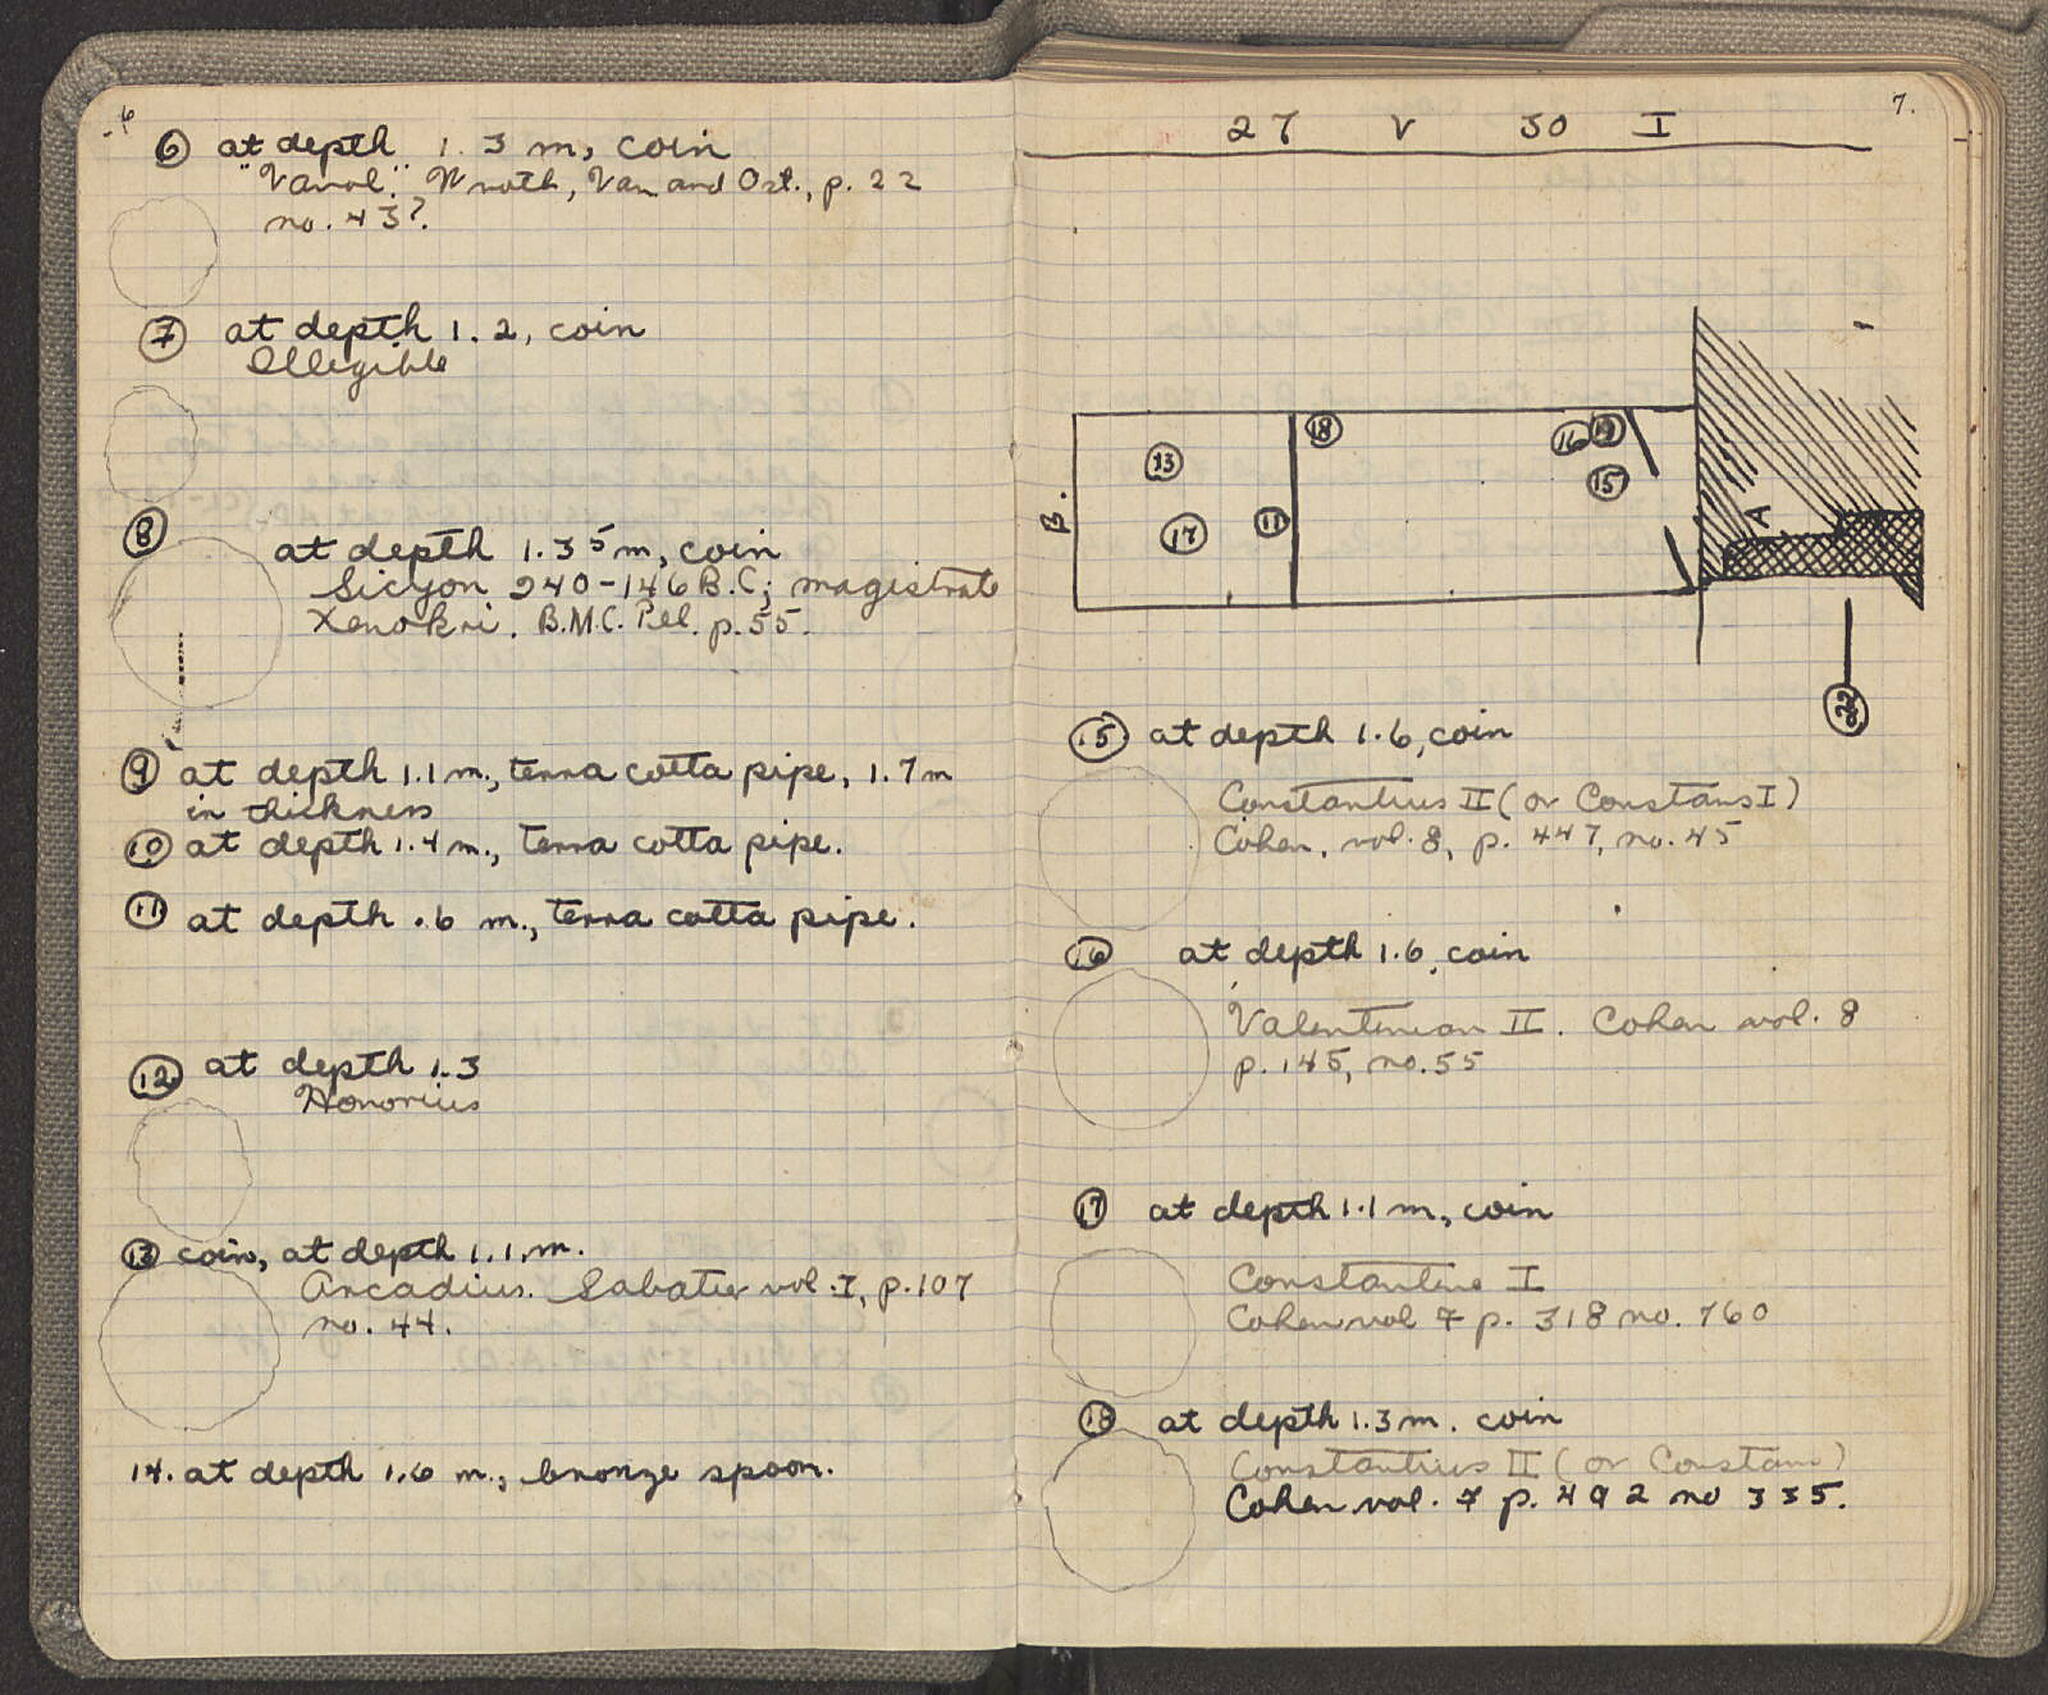 6
⑥ at depth 1.3 m, coin
"Vandal." Wroth, Van and Ost., p. 22
no. 43?
⑦ at depth 1.2, coin
Illegible
⑧
at depth 1.35 m, coin
Sicyon 240-146 B.C; magistrate
Xenokri. B.M.C. Pel. p. 55.
⑨ at depth 1.1 m., terra cotta pipe, 1.7 m
in thickness
⑩ at depth 1.4 m., terra cotta pipe.
⑪ at depth .6 m., terra cotta pipe.
⑫ at depth 1.3
Honorius
⑬ coin, at depth 1.1 m.
Arcadius. Sabatier vol. I, p. 107
no. 44.
14. at depth 1.6 m., bronze spoon.
7.
27 V 30 I
⑱ ⑯
⑬ ⑮
B. ⑰ ⑪ A
㉒
⑮ at depth 1.6, coin
Constantius II (or Constans I)
Cohen, vol. 8, p. 447, no. 45
⑯ at depth 1.6, coin
Valentinian II. Cohen vol. 8
p. 145, no. 55
⑰ at depth 1.1 m., coin
Constantine I
Cohen vol 7 p. 318 no. 760
⑱ at depth 1.3 m. coin
Constantius II (or Constans)
Cohen vol. 7 p. 492 no 335.